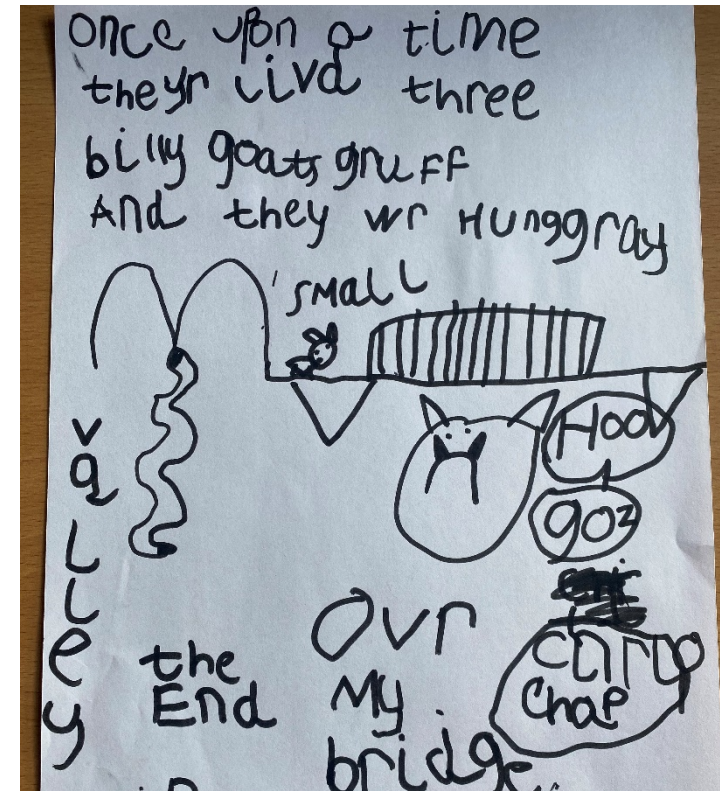 once upon a time
theyr livd three
billy goats gruff
And they wr Hunggray
small
valley
Hoo
goz
ovr
My
bridge
chap
the
End